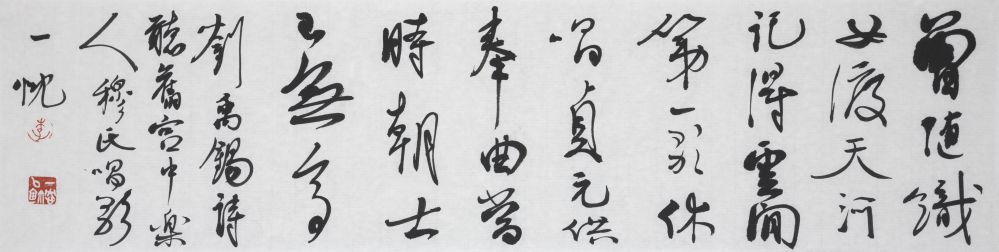 曾随織
女渡天河
記得雲間
第一歌休
唱貞元供
奉曲當
時朝士
已無多
劉禹錫詩
聽舊宮中樂
人穆氏唱歌
一忱
李